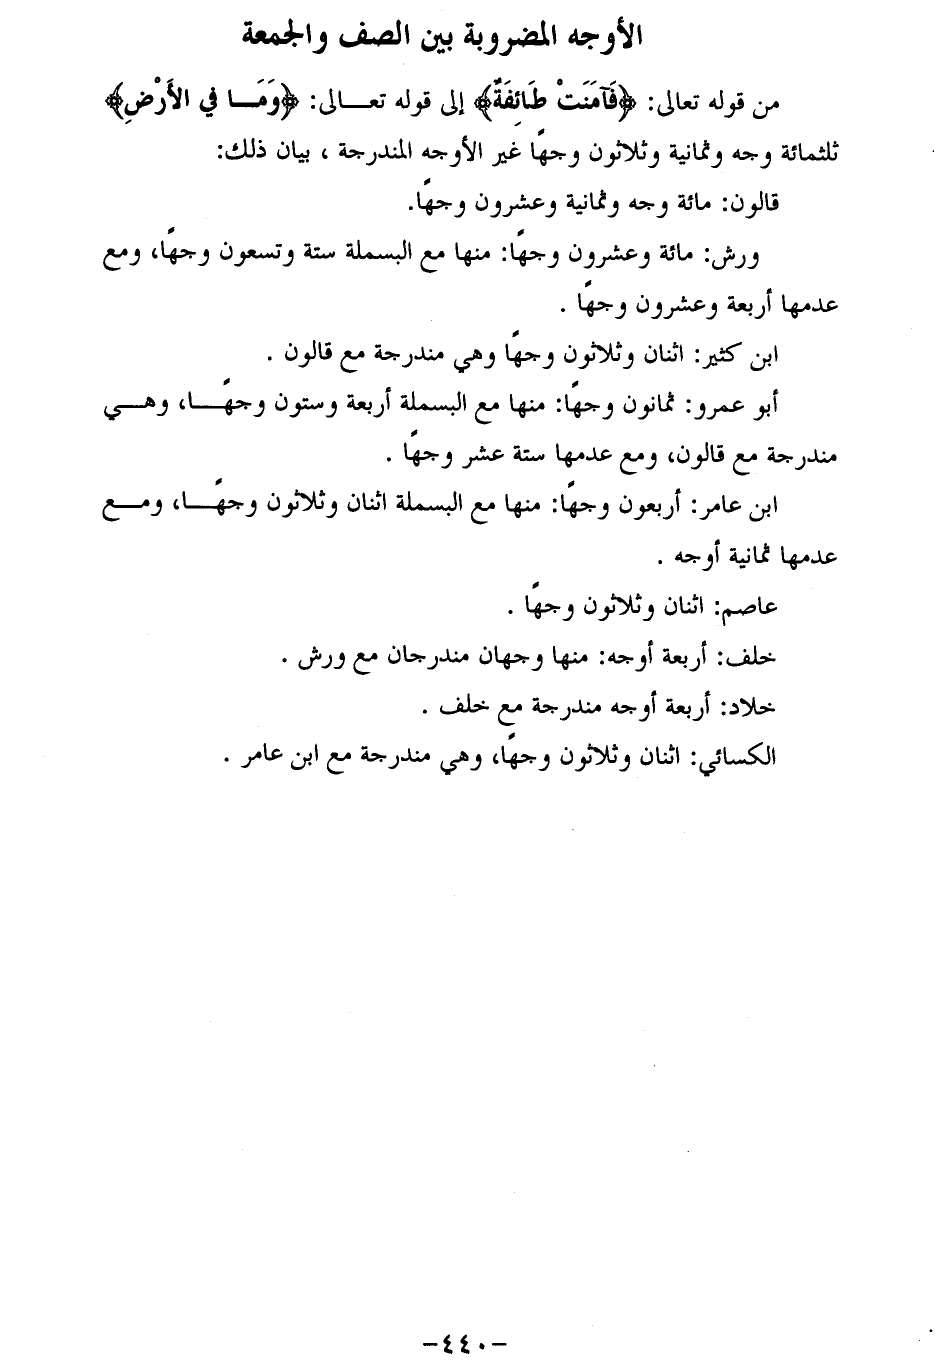 الأوجه المضروبة بين الصف والجمعة
من قوله تعالى: ﴿فَآمَنَتْ طَائِفَةٌ﴾ إلى قوله تعـالى: ﴿وَمَـا في الأَرْضِ﴾
ثلثمائة وجه وثمانية وثلاثون وجهًا غير الأوجه المندرجة ، بيان ذلك:
قالون: مائة وجه وثمانية وعشرون وجهًا.
ورش: مائة وعشرون وجهًا: منها مع البسملة ستة وتسعون وجهًا، ومع
عدمها أربعة وعشرون وجهًا .
ابن كثير: اثنان وثلاثون وجهًا وهي مندرجة مع قالون .
أبو عمرو: ثمانون وجهًا: منها مع البسملة أربعة وستون وجهًـا، وهـي
مندرجة مع قالون، ومع عدمها ستة عشر وجهًا .
ابن عامر: أربعون وجهًا: منها مع البسملة اثنان وثلاثون وجهًـا، ومـع
عدمها ثمانية أوجه .
عاصم: اثنان وثلاثون وجهًا .
خلف: أربعة أوجه: منها وجهان مندرجان مع ورش .
خلاد: أربعة أوجه مندرجة مع خلف .
الكسائي: اثنان وثلاثون وجهًا، وهي مندرجة مع ابن عامر .
-٤٤٠-